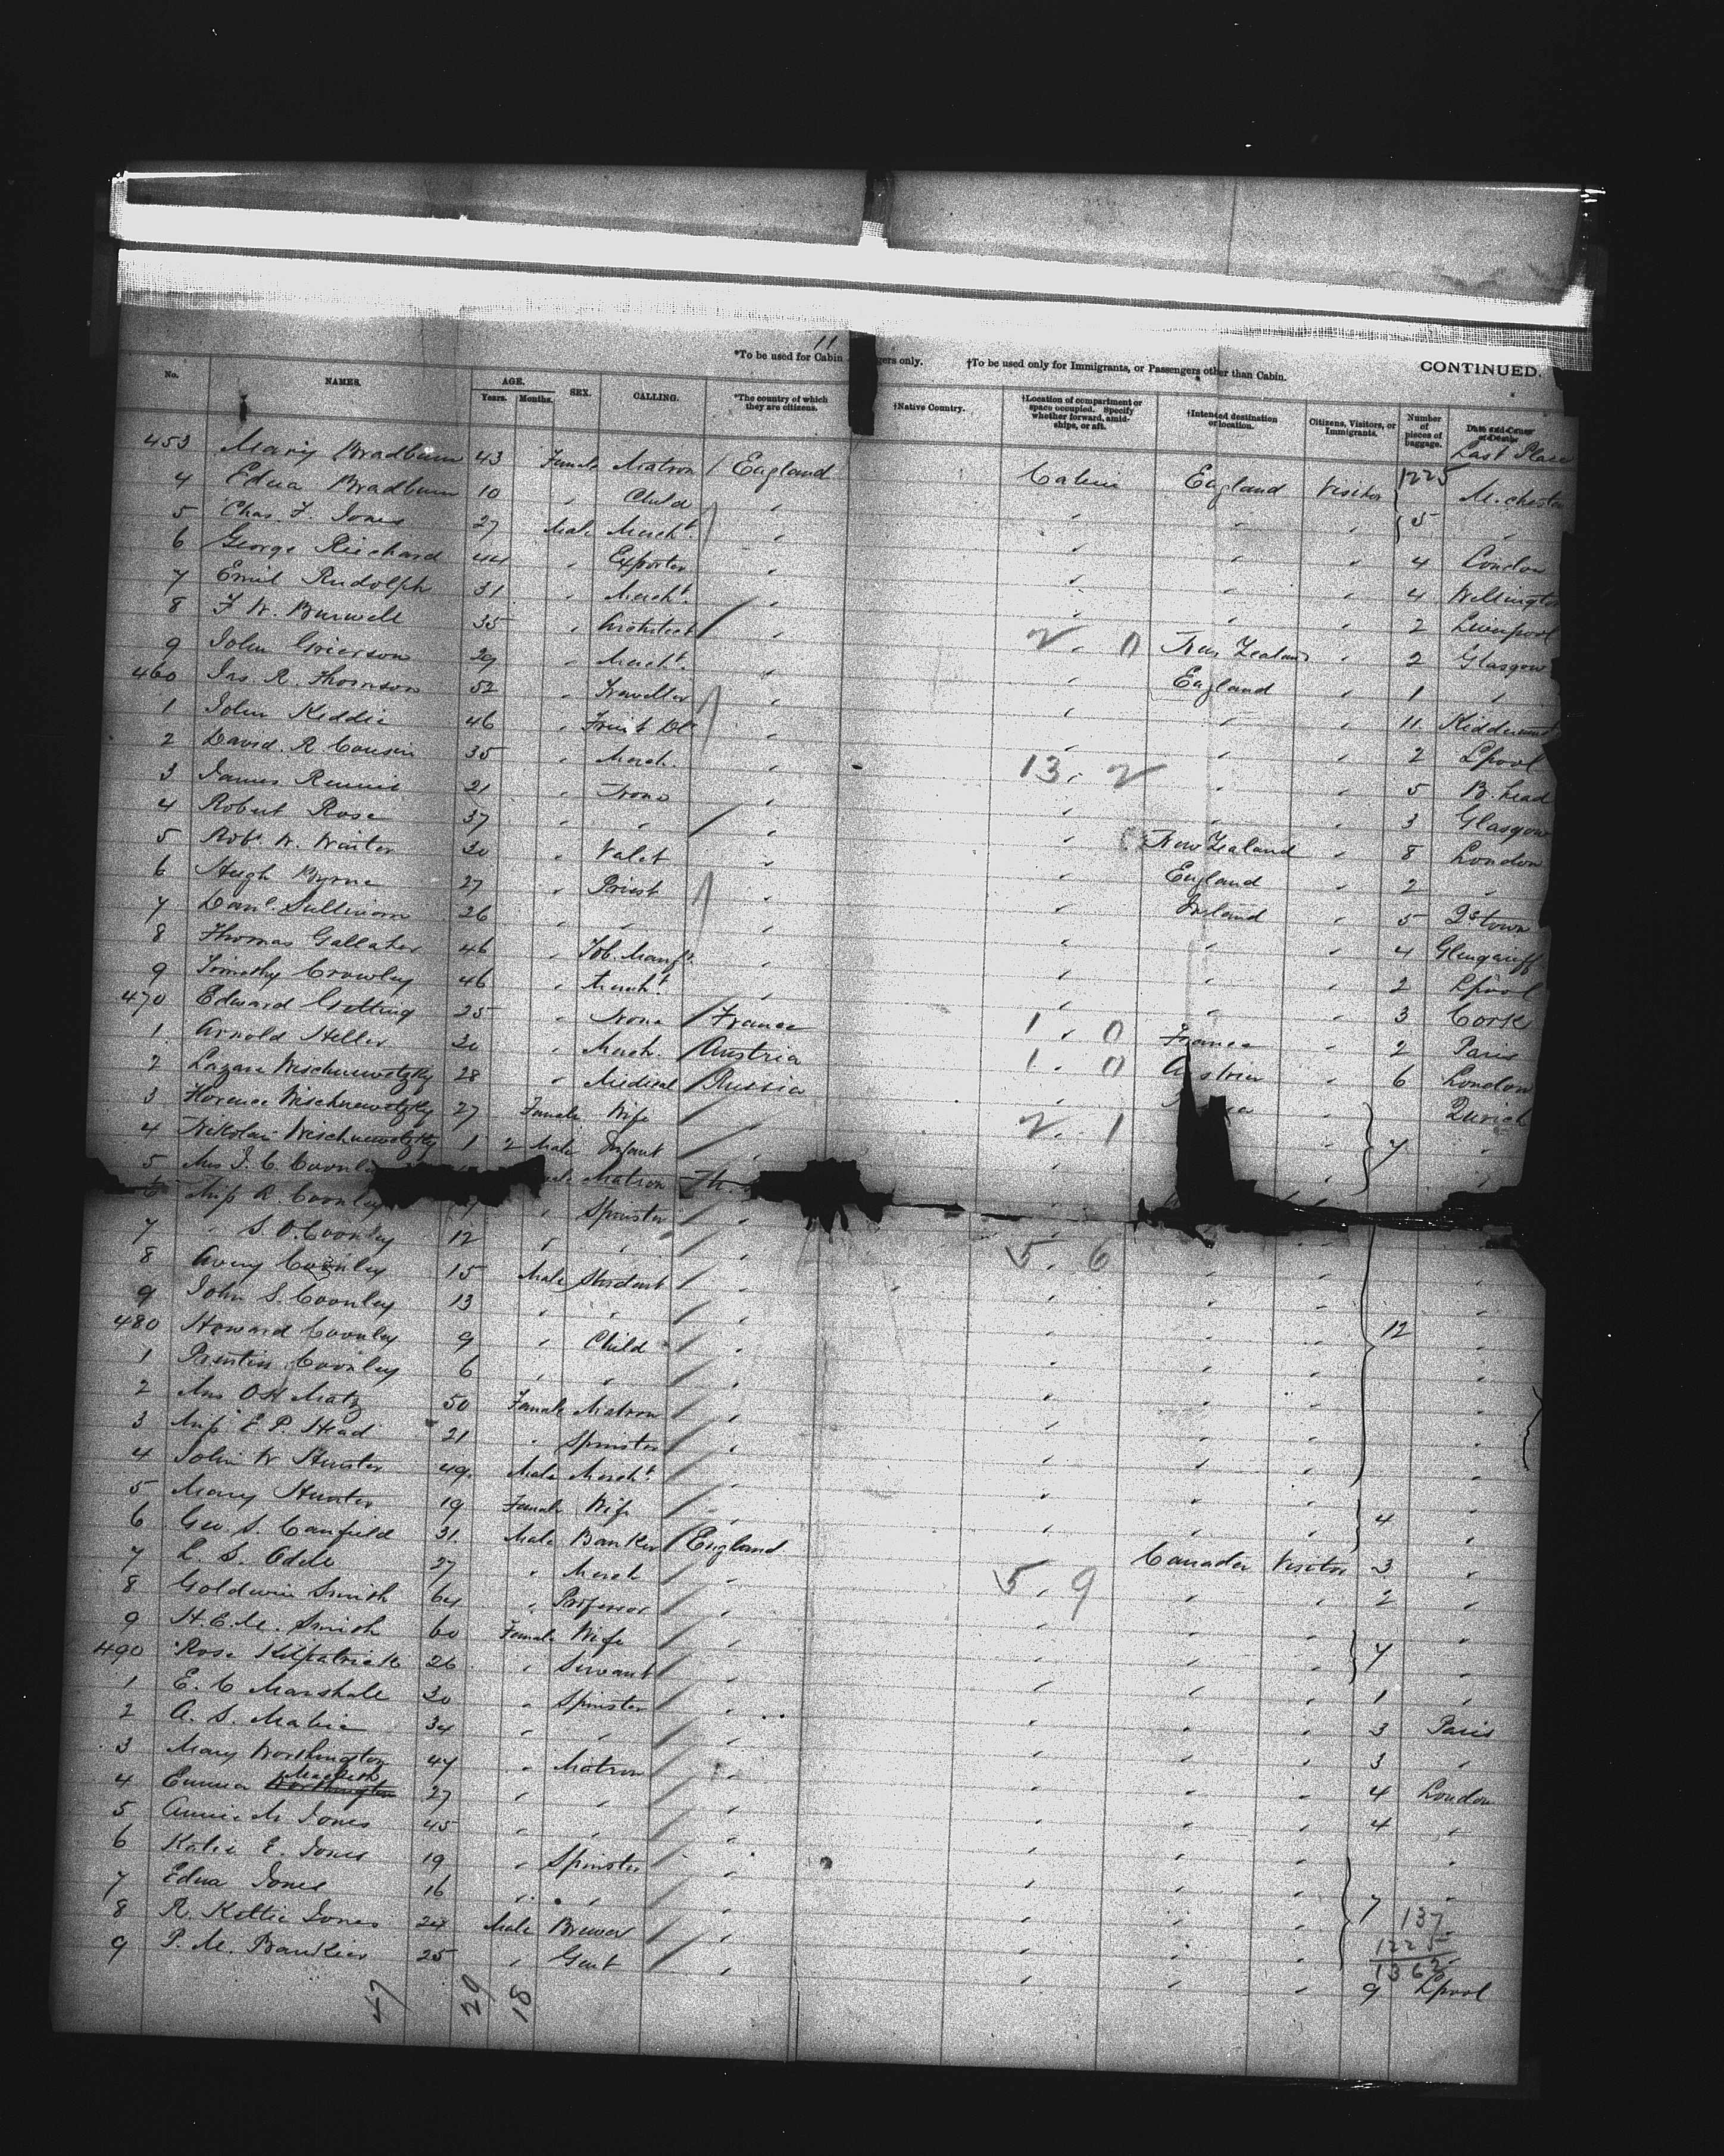 11
*To be used for Cabin gers only. †To be used only for Immigrants, or Passengers other than Cabin. CONTINUED.
No. NAMES. AGE. Years. Months. SEX. CALLING. *The country of which they are citizens. †Native Country. †Location of compartment or space occupied. Specify whether forward, amidships, or aft. †Intended destination or location. Citizens, Visitors, or Immigrants. Number of pieces of baggage. Date and Cause of Death.
Last Place
453 Mary Bradburn 43 Female Matron England Cabin England Visitor 1225 M.chester
4 Edna Bradburn 10 " Child " " " " 5 "
5 Chas. F. Jones 27 Male Mercht. " " " " 4 London
6 George Reichard 44 " Exporter " " " " 4 Wellington
7 Emil Rudolph 31 " Mercht. " " " " 2 Liverpool
8 F W. Burwell 35 " Architect " 2 . 0 New Zealand " 2 Glasgow
9 John Grierson 29 " Mercht. " " England " 1 "
460 Jas. R. Thomson 52 " Traveller " " " " 11
1 John Keddie 46 " " " " " 2 Lpool
2 David. R. Cousin 35 " Merch. " 13 . 2 " " 5 B.head
3 James Rennie 21 " None " " " " 3 Glasgow
4 Robert Rose 37 " " " " New Zealand " 8 London
5 Robt. W. Winter 30 " Valet " " England " 2 "
6 Hugh Byrne 27 " Priest " " Ireland " 5 Qstown
7 Danl. Sullivan 26 " " " " " " 4 Glengariff
8 Thomas Gallaher 46 " Tob. Manfr. " " " " 2 Lpool
9 Timothy Crowley 46 " Mercht. " " " " 3 Cork
470 Edward Getting 25 " None France 1 . 0 France " 2 Paris
1 Arnold Heller 30 " Merch. Austria 1 . 0 Austria " 6 London
2 Lazare Wischnewetzky 28 " Medical Russia " " Zurich
3 Florence Wischnewetzky 27 Female Wife " 2 . 1 " 7 "
4 Nikolai Wischnewetzky 1 2 Male Infant " " " "
5 Mrs J. C. Coonley Matron
6 Miss A. Coonley " Spinster "
7 " S. O. Coonley 12 " " " 5 . 6 " "
8 Avery Coonley 15 Male Student " " " "
9 John S. Coonley 13 " " " " " " "
480 Howard Coonley 9 " Child " " " " 12 "
1 Prentiss Coonley 6 " " " " " " "
2 Mrs O H Matz 50 Female Matron " " " " "
3 Miss E. P. Head 21 " Spinster " " " " "
4 John W Hunter 49 Male Mercht. " " " " "
5 Mary Hunter 19 Female Wife " " " " 4 "
6 Geo. S. Canfield 31 Male Banker England Canada Visitor 3 "
7 L. S. Odell 27 " Merch " 5 . 9 " " 2 "
8 Goldwin Smith 64 " Professor " " " " "
9 H. E. M. Smith 60 Female Wife " " " " 7 "
490 Rose Kilpatrick 26 " Servant " " " " 1 "
1 E. C Marshall 30 " Spinster " " " " 3 Paris
2 A. S. 34 " " " " " " 3 "
3 Mary Worthington 47 " Matron " " " " 4 London
4 Emma 27 " " " " " " 4 "
5 Annie M Jones 45 " " " " " " "
6 Katie E. Jones 19 " Spinster " " " " "
7 Edna Jones 16 " " " " " " 7 137
8 R. Kettie Jones 24 Male Brewer " " " " 1225
1362
9 P. M. Bankier 25 " Gent " " " " 9 Lpool
47 29 18